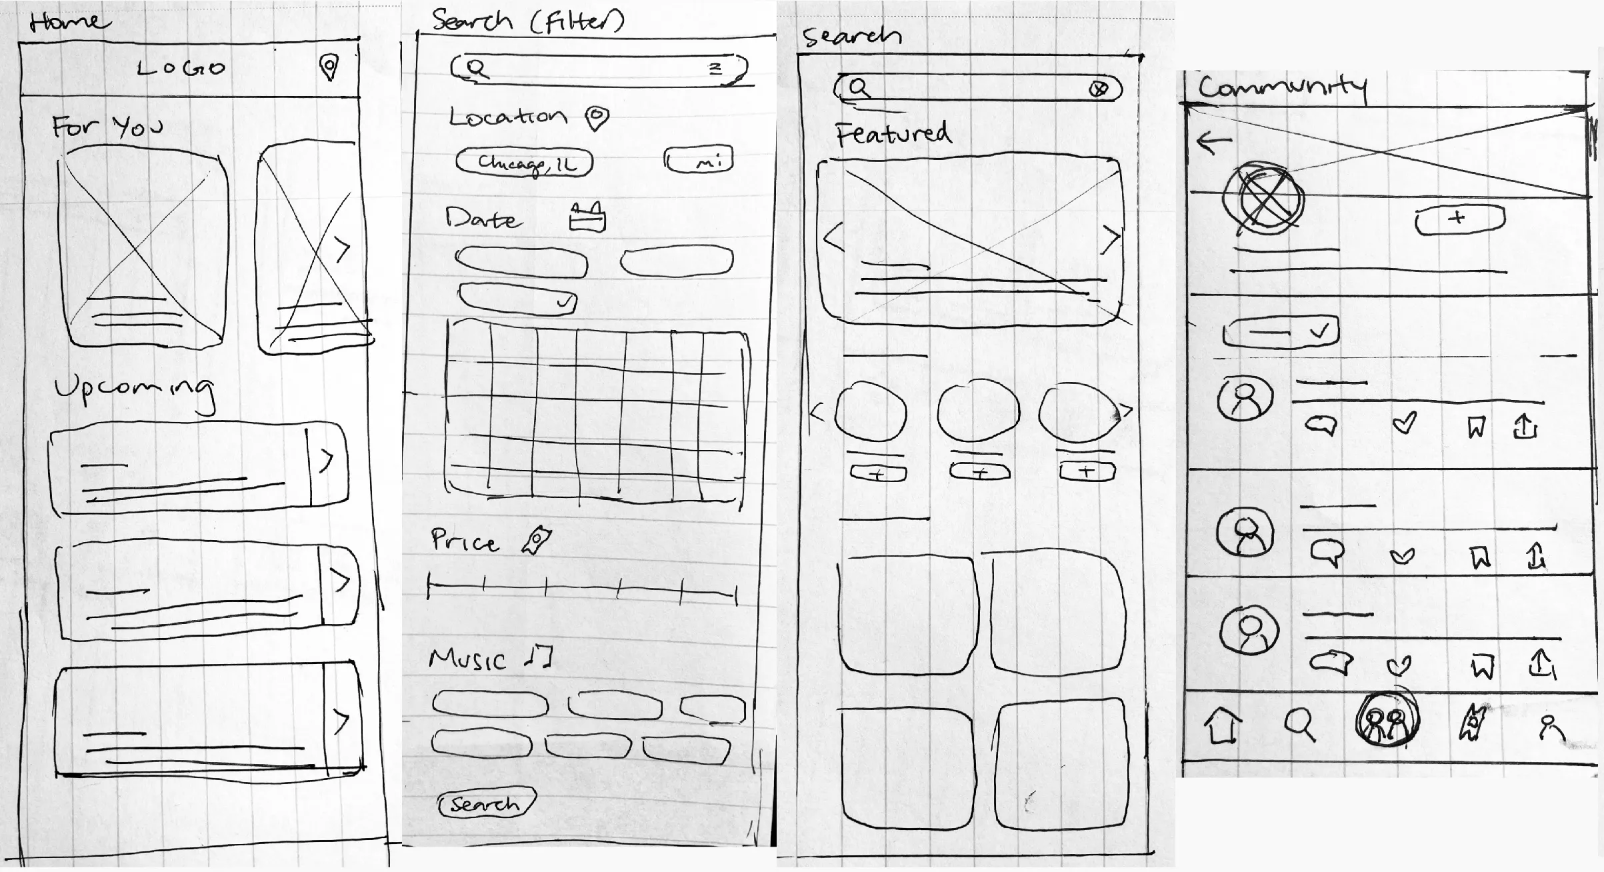 Home
LOGO
For You
Upcoming
Search (Filter)
Location
Chicago, IL
mi
Date
Price
Music
Search
Search
Featured
Community